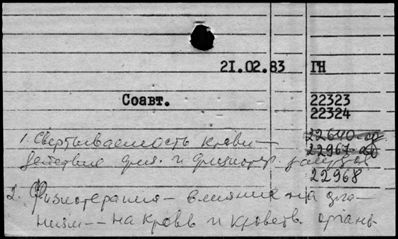 21.02.83 ГН
Соавт. 22323
22324
1. Свертываемость крови — 22640-об
действие физ. и физиотер. 22967-об
22968
2. Физиотерапия — влияние на орга-
низм — на кровь и кроветв. органы